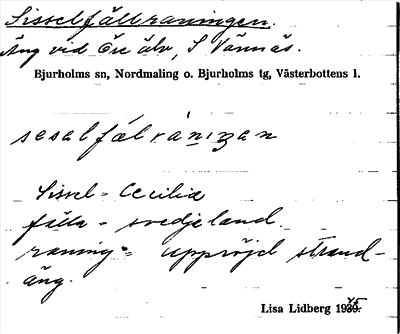 Sisselfällraningen.
Äng vid Öre älv, S Vännäs.
Bjurholms sn, Nordmaling o. Bjurholms tg, Västerbottens l.
sesalfälrániŋan
Sissel = Cecilia
fälla = svedjeland
raning = uppröjd strand-
äng.
Lisa Lidberg 1945.